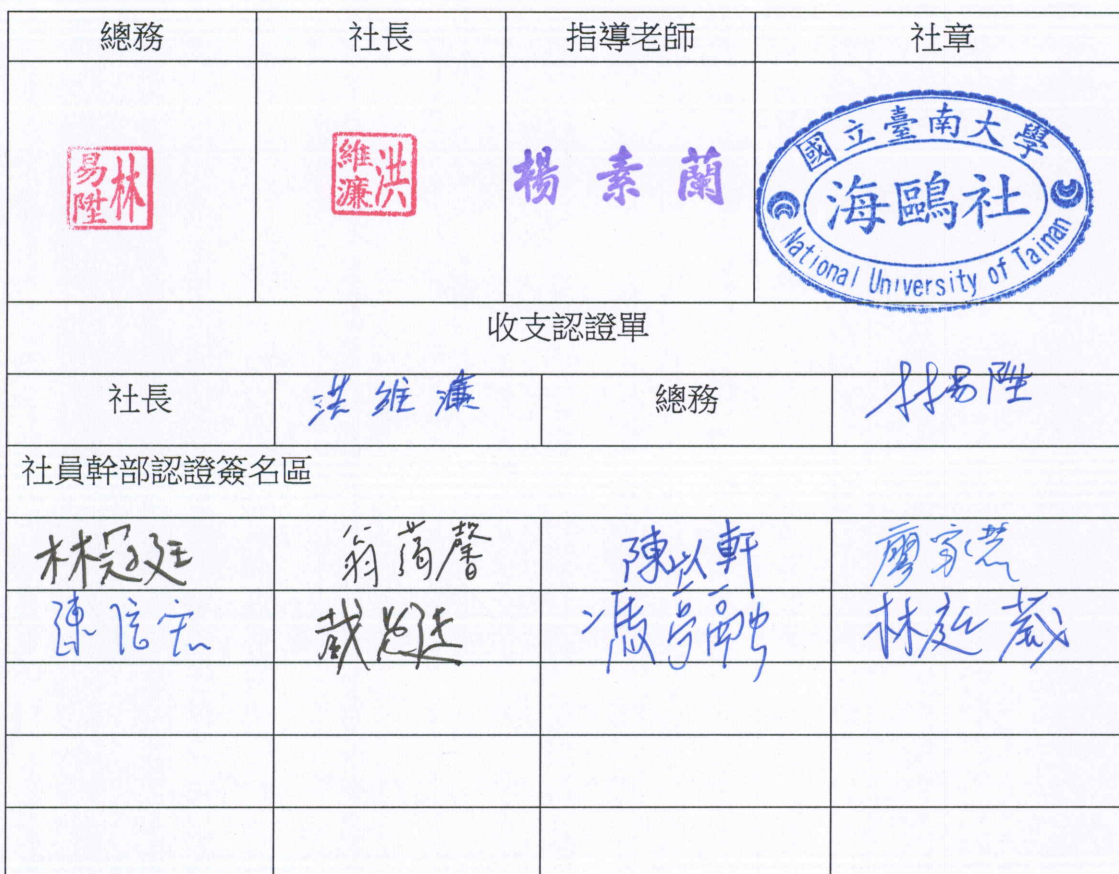 總務 社長 指導老師 社章
林易陞 洪維濂 楊素蘭 國立臺南大學
海鷗社
National University of Tainan
收支認證單
社長 洪維濂 總務 林易陞
社員幹部認證簽名區
林冠廷 翁蒟馨 陳苡軒
陳信宏 林庭葳